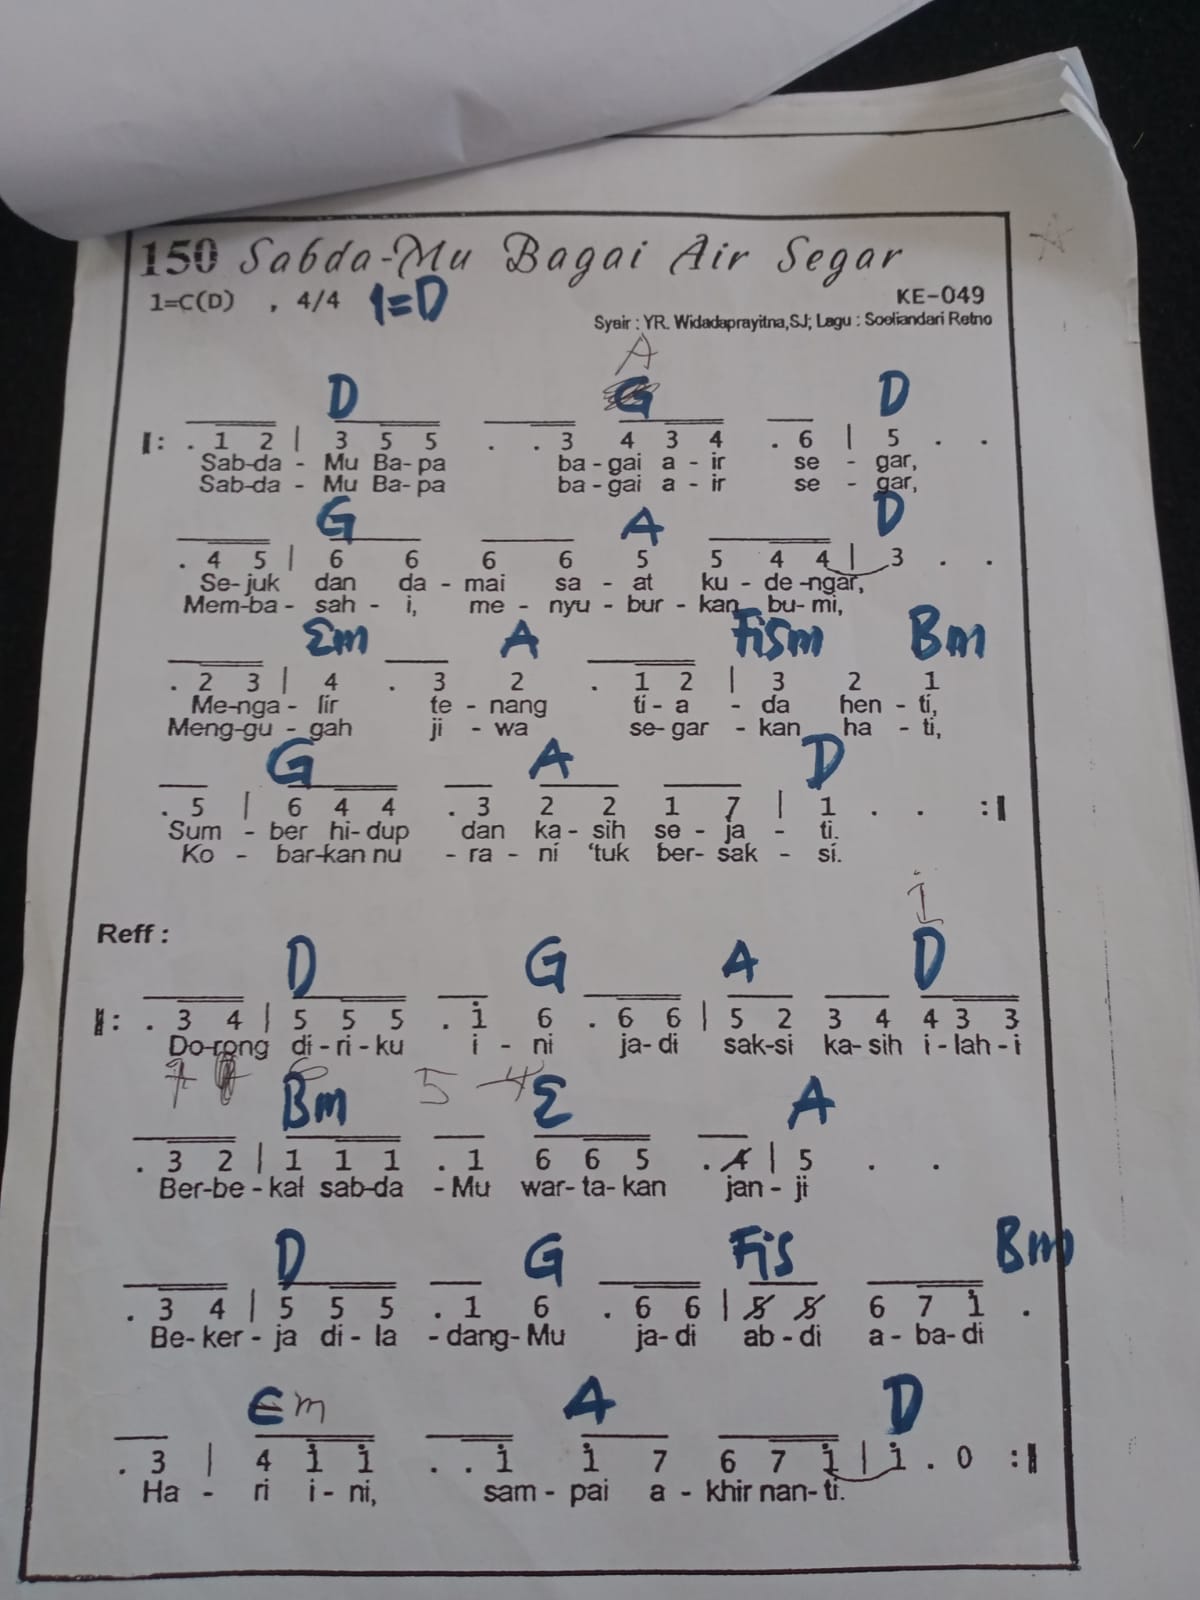 150 Sabda-Mu Bagai Air Segar
1=C(D) , 4/4 1=D KE-049
Syair : YR. Widadaprayitna,SJ; Lagu : Soeliandari Retno
A
D G D
|: . 1 2 | 3 5 5 . . 3 4 3 4 . 6 | 5 . .
Sab-da - Mu Ba- pa ba - gai a - ir se - gar,
Sab-da - Mu Ba- pa ba - gai a - ir se - gar,
G A D
. 4 5 | 6 6 6 6 5 5 4 4 | 3 . .
Se- juk dan da - mai sa - at ku - de -ngar,
Mem-ba - sah - i, me - nyu - bur - kan bu- mi,
Em A Fism Bm
. 2 3 | 4 . 3 2 . 1 2 | 3 2 1
Me-nga - lir te - nang ti - a - da hen - ti,
Meng-gu - gah ji - wa se- gar - kan ha - ti,
G A D
. 5 | 6 4 4 . 3 2 2 1 7 | 1 . . :|
Sum - ber hi- dup dan ka - sih se - ja - ti.
Ko - bar-kan nu - ra - ni ‘tuk ber- sak - si.
i
Reff :
D G A D
|: . 3 4 | 5 5 5 . i 6 . 6 6 | 5 2 3 4 4 3 3
Do-rong di - ri - ku i - ni ja- di sak-si ka- sih i - lah - i
5 4
Bm E A
. 3 2 | 1 1 1 . 1 6 6 5 . 4 | 5 . .
Ber-be - kal sab-da - Mu war- ta- kan jan - ji
D G Fis Bm
. 3 4 | 5 5 5 . 1 6 . 6 6 | 5 5 6 7 i .
Be- ker - ja di - la - dang- Mu ja- di ab - di a - ba- di
Em A D
. 3 | 4 i i . . i i 7 6 7 i | i . 0 :|
Ha - ri i - ni, sam - pai a - khir nan- ti.